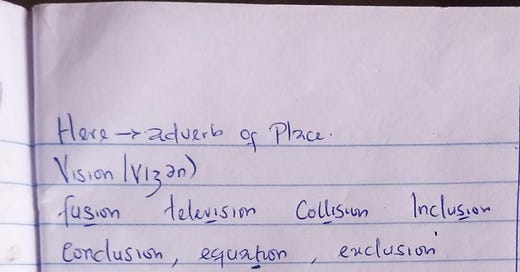 Here → adverb of Place.
Vision (vIʒən)
fusion television Collision Inclusion
Conclusion, equation, exclusion